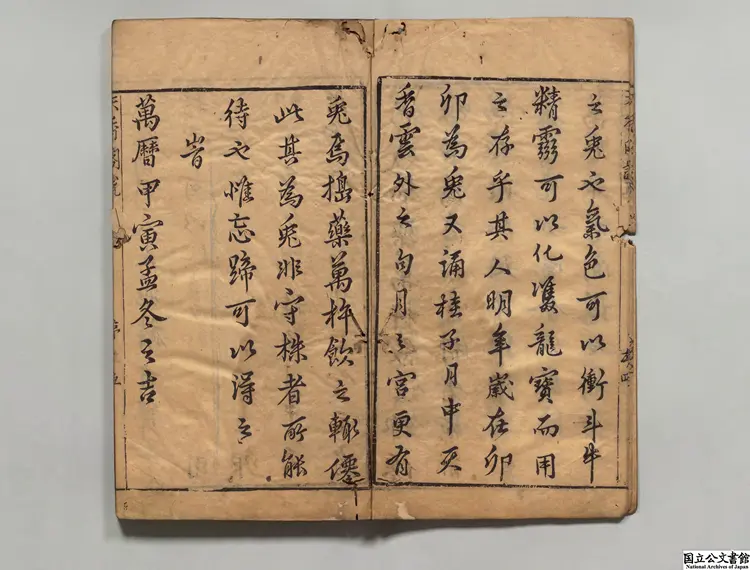 之兎也氣色可以衝斗牛
精靈可以化雙龍寶而用
之存乎其人明年歲在卯
卯為兎又誦桂子月中天
香雲外之句月之宮更有
兎焉搗藥萬杵飲之輒僊
此其為兎非守株者所能
待也惟忘蹄可以得之
旹
萬曆甲寅孟冬之吉
国立公文書館
National Archives of Japan